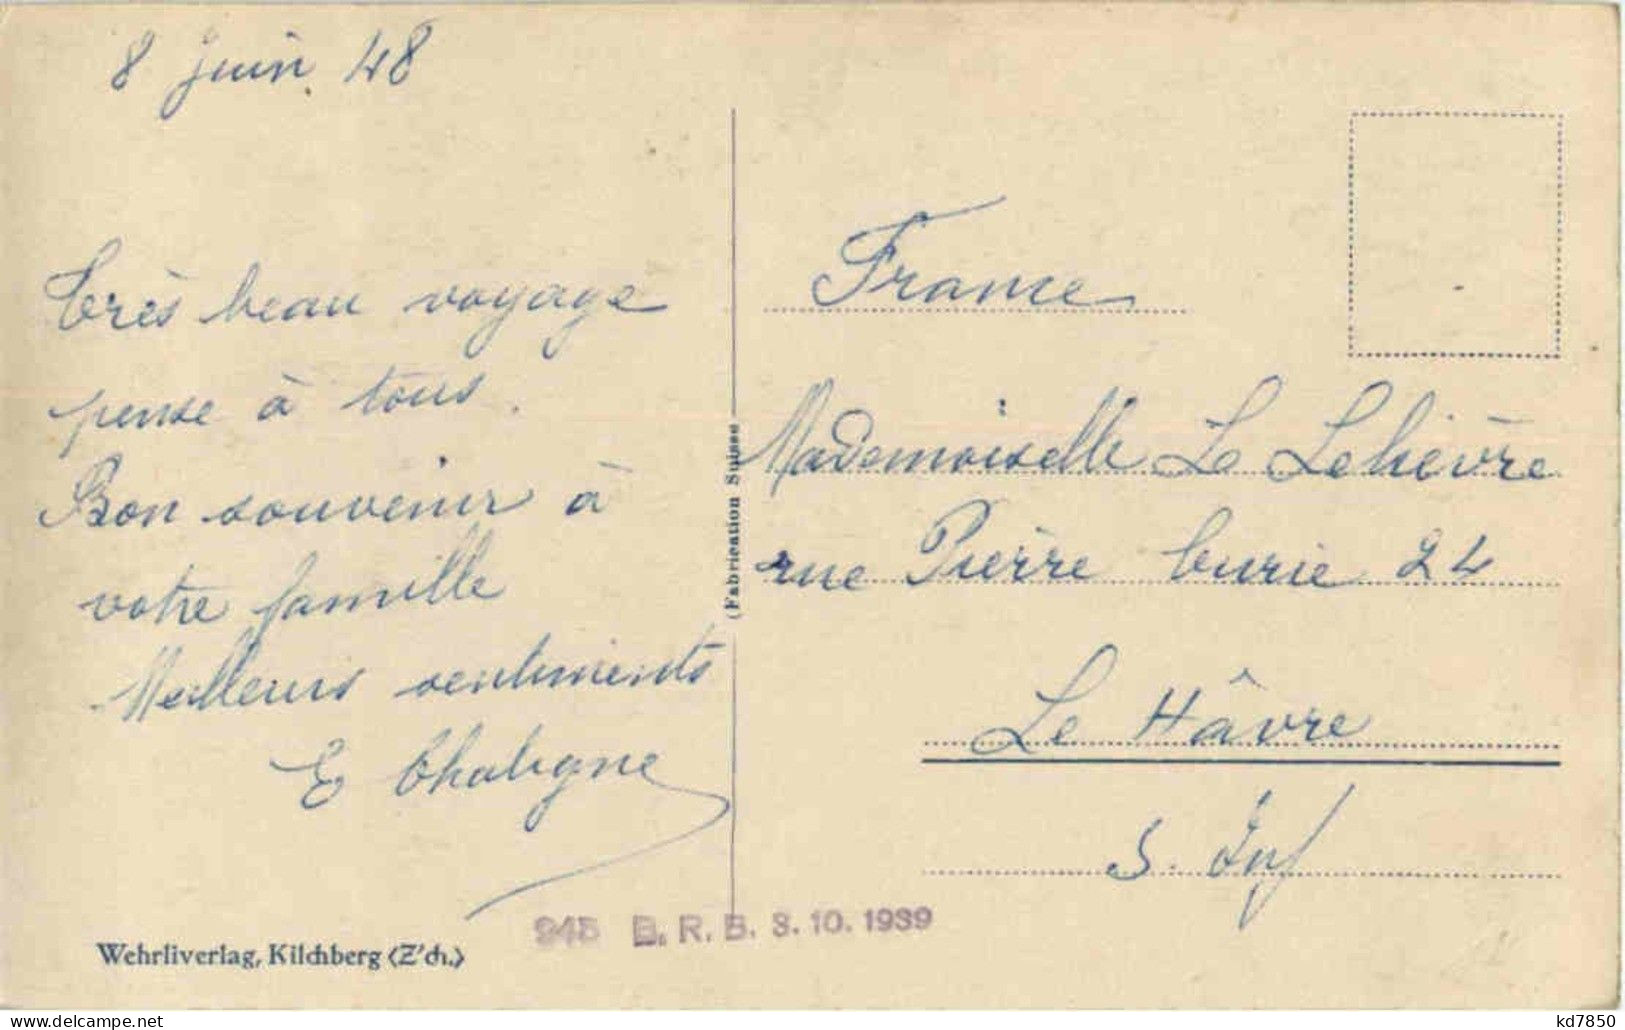 8 juin 48
Très beau voyage
pense à tous.
Bon souvenir à
votre famille
Meilleurs sentiments
E Chaligne
Wehrliverlag, Kilchberg (Z'ch.)
(Fabrication Suisse)
945 B. R. B. 3. 10. 1939
France
Mademoiselle L Lelièvre
rue Pierre Curie 24
Le Hâvre
S. Inf
kd7850